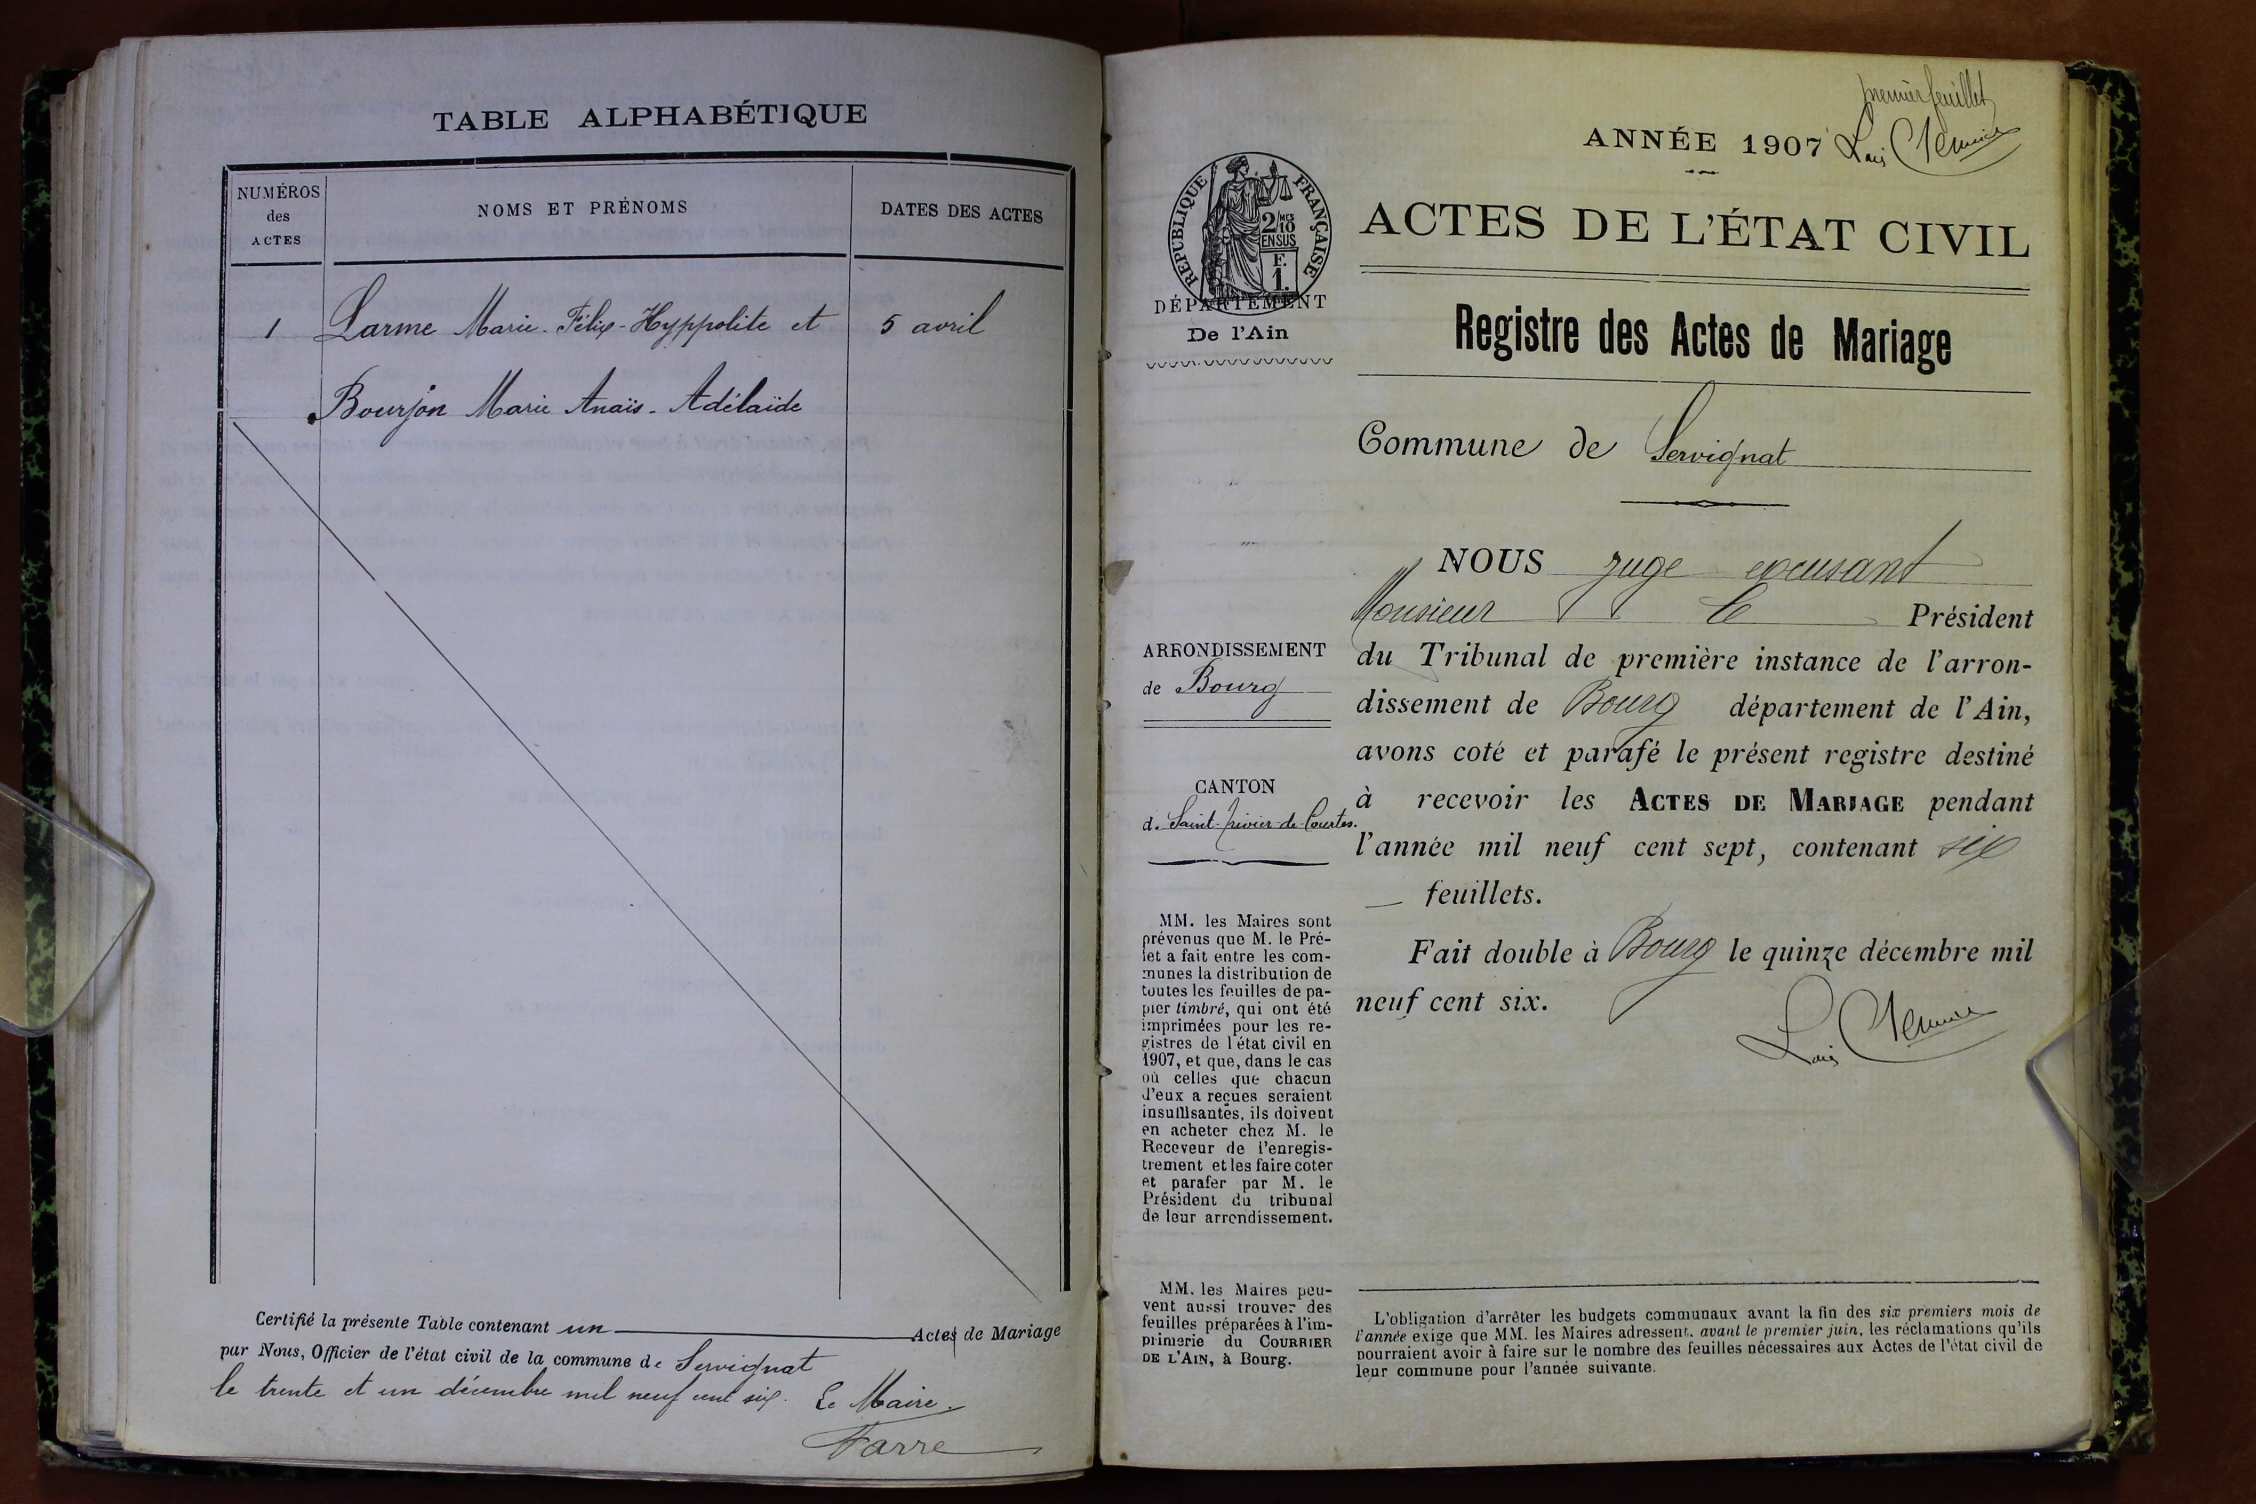 TABLE ALPHABÉTIQUE
NUMÉROS
des
ACTES
NOMS ET PRÉNOMS
DATES DES ACTES
1 Larme Marie-Félix-Hyppolite et 5 avril
Bourjon Marie Anaïs-Adélaïde
Certifié la présente Table contenant un Actes de Mariage
par Nous, Officier de l'état civil de la commune de Servignat
le trente et un décembre mil neuf cent six. Le Maire.
Farre
premier feuillet
ANNÉE 1907
RÉPUBLIQUE FRANÇAISE
2/10 MES
EN SUS
F.
1.
DÉPARTEMENT
De l'Ain
ARRONDISSEMENT
de Bourg
CANTON
de Saint-Trivier-de-Courtes.
MM. les Maires sont
prévenus que M. le Pré-
fet a fait entre les com-
munes la distribution de
toutes les feuilles de pa-
pier timbré, qui ont été
imprimées pour les re-
gistres de l'état civil en
1907, et que, dans le cas
où celles que chacun
d'eux a reçues seraient
insuffisantes, ils doivent
en acheter chez M. le
Receveur de l'enregis-
trement et les faire coter
et parafer par M. le
Président du tribunal
de leur arrondissement.
MM. les Maires peu-
vent aussi trouver des
feuilles préparées à l'im-
primerie du COURRIER
DE L'AIN, à Bourg.
ACTES DE L'ÉTAT CIVIL
Registre des Actes de Mariage
Commune de Servignat
NOUS juge excusant
Monsieur le Président
du Tribunal de première instance de l'arron-
dissement de Bourg département de l'Ain,
avons coté et parafé le présent registre destiné
à recevoir les ACTES DE MARIAGE pendant
l'année mil neuf cent sept, contenant six
feuillets.
Fait double à Bourg le quinze décembre mil
neuf cent six.
L'obligation d'arrêter les budgets communaux avant la fin des six premiers mois de
l'année exige que MM. les Maires adressent, avant le premier juin, les réclamations qu'ils
pourraient avoir à faire sur le nombre des feuilles nécessaires aux Actes de l'état civil de
leur commune pour l'année suivante.